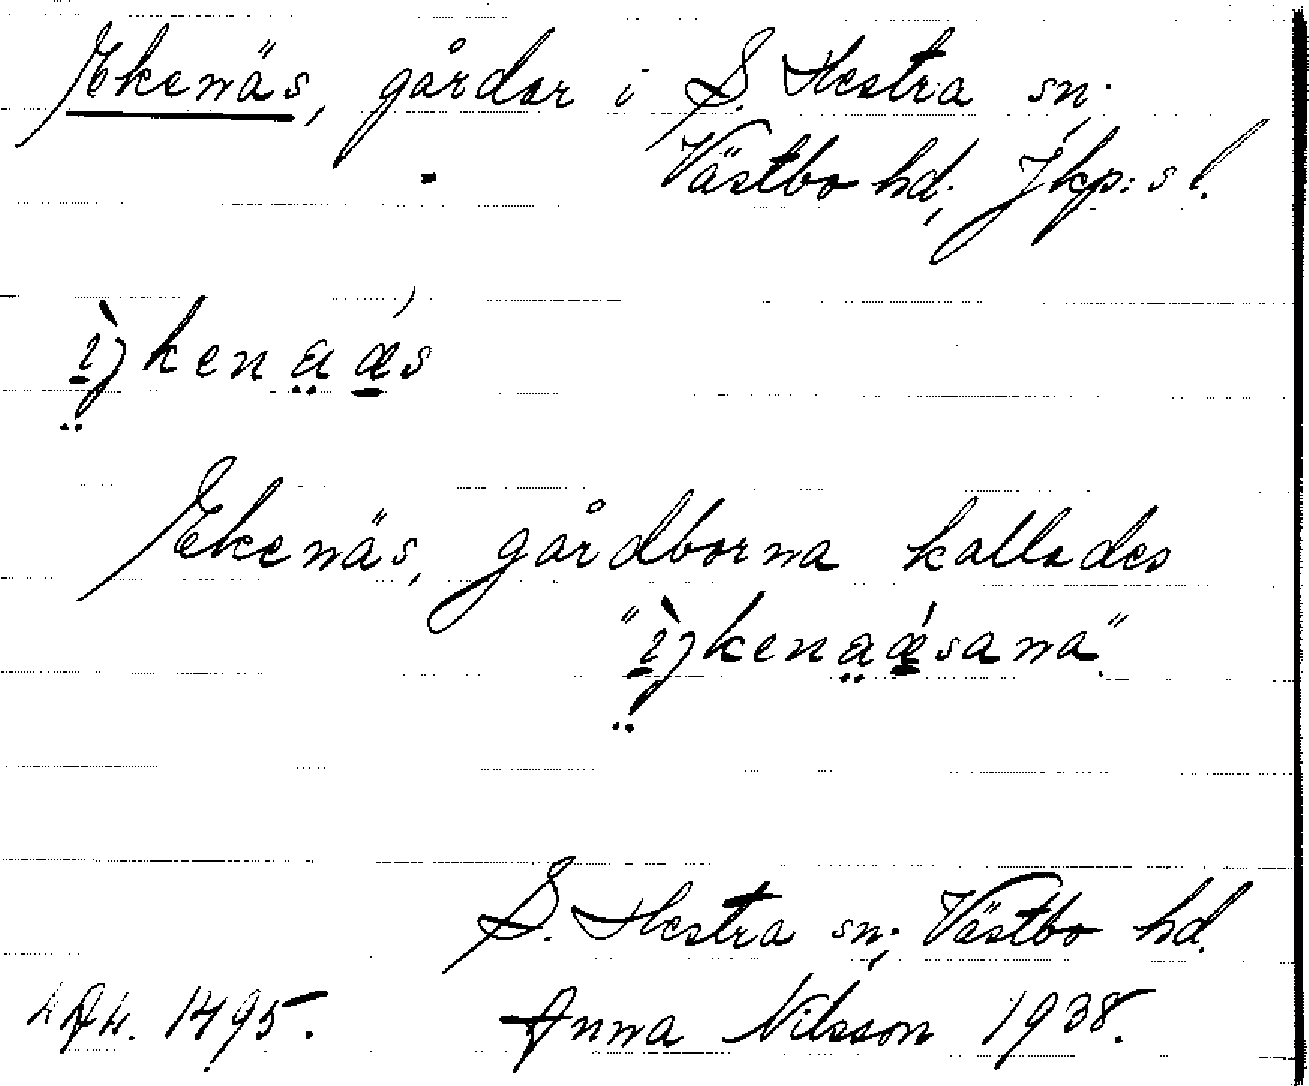 Ekenäs, gårdar i S. Hestra sn;
Västbo hd; Jkp:s l.
ìjkenaǽs
Ekenäs, gårdborna kallades
"ìjkenaǽsana".
S. Hestra sn; Västbo hd.
1495. Anna Nilsson 1938.